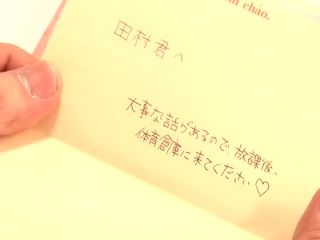 cháo.
田村君へ
大事な話があるので、放課後、
体育倉庫に来てください♡